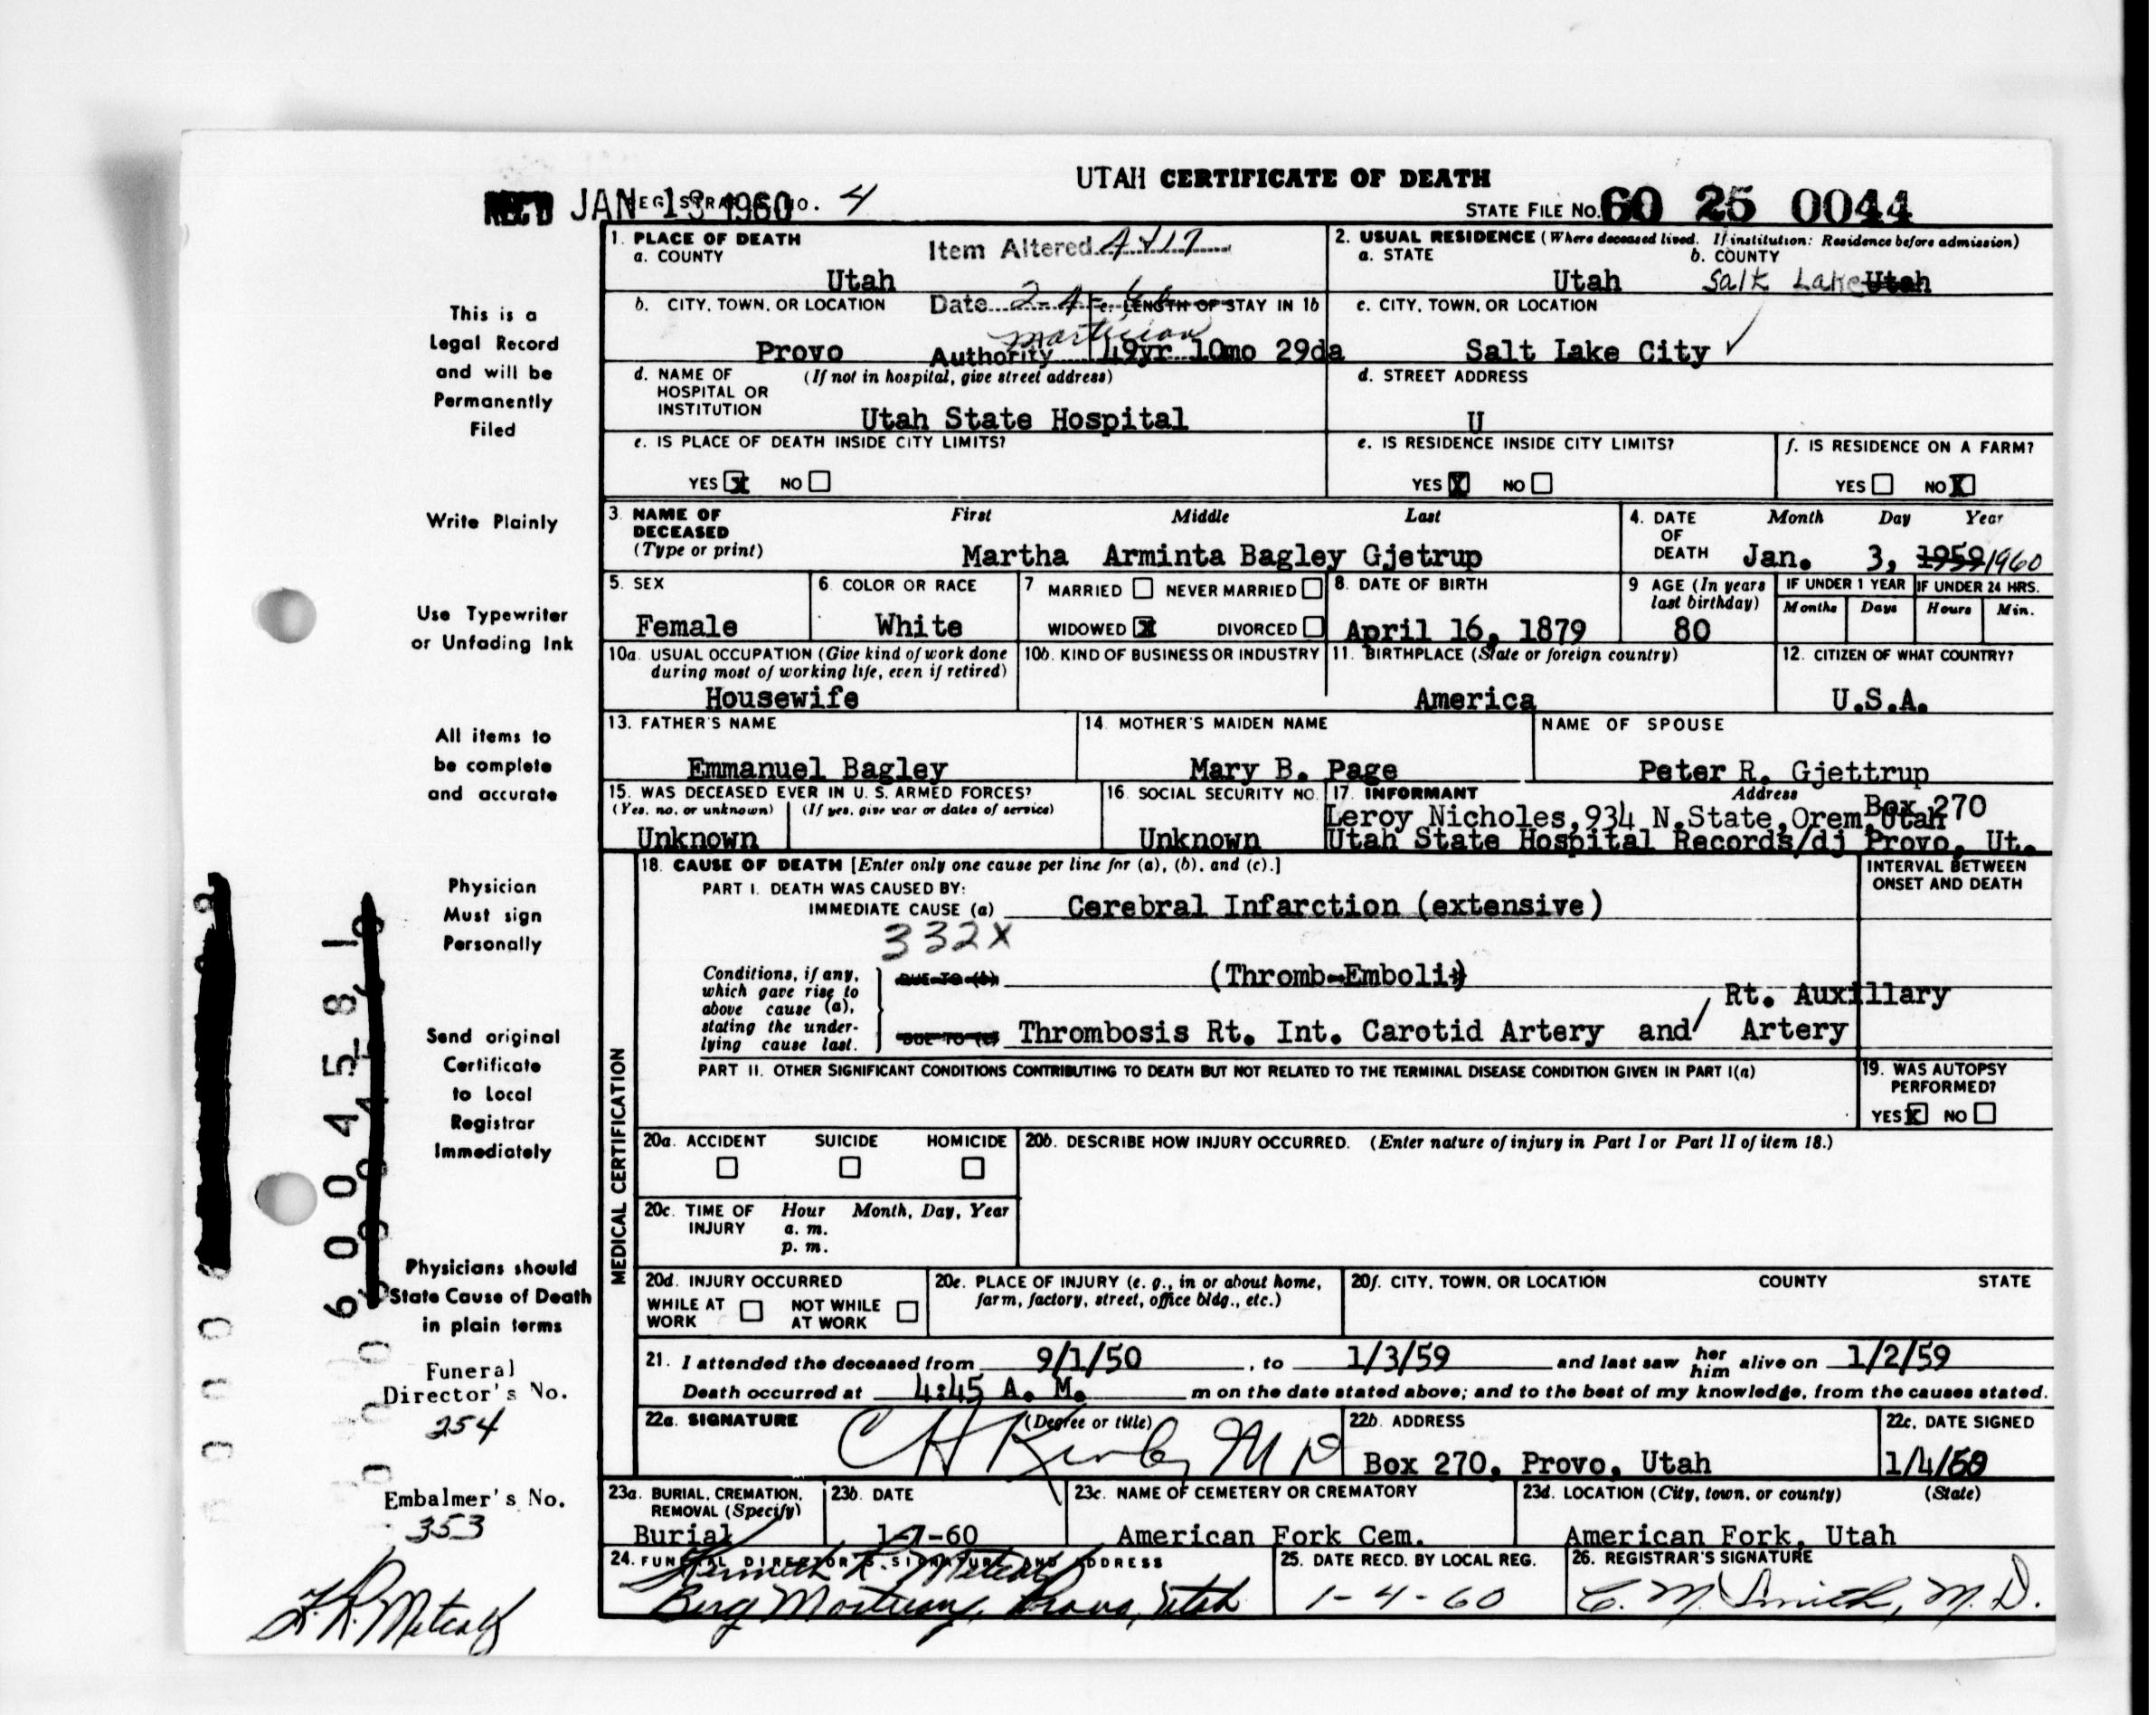 UTAH CERTIFICATE OF DEATH
REC'D JAN 13 1960
REGISTRAR'S NO. 4
STATE FILE NO. 60 25 0044
1. PLACE OF DEATH
a. COUNTY
Utah
Item Altered
2. USUAL RESIDENCE (Where deceased lived. If institution: Residence before admission)
a. STATE
Utah
b. COUNTY
Salt Lake Utah
b. CITY, TOWN, OR LOCATION
Provo
Date
Authority mortician
c. LENGTH OF STAY IN 1b
49yr 10mo 29da
c. CITY, TOWN, OR LOCATION
Salt Lake City ✓
d. NAME OF HOSPITAL OR INSTITUTION
(If not in hospital, give street address)
Utah State Hospital
d. STREET ADDRESS
U
e. IS PLACE OF DEATH INSIDE CITY LIMITS?
YES X NO
e. IS RESIDENCE INSIDE CITY LIMITS?
YES X NO
f. IS RESIDENCE ON A FARM?
YES NO X
3. NAME OF DECEASED
(Type or print)
First Middle Last
Martha Arminta Bagley Gjetrup
4. DATE OF DEATH
Month Day Year
Jan. 3, 1959 1960
5. SEX
Female
6. COLOR OR RACE
White
7 MARRIED NEVER MARRIED
WIDOWED X DIVORCED
8. DATE OF BIRTH
April 16, 1879
9 AGE (In years last birthday)
80
IF UNDER 1 YEAR
Months Days
IF UNDER 24 HRS.
Hours Min.
10a. USUAL OCCUPATION (Give kind of work done during most of working life, even if retired)
Housewife
10b. KIND OF BUSINESS OR INDUSTRY
11. BIRTHPLACE (State or foreign country)
America
12. CITIZEN OF WHAT COUNTRY?
U.S.A.
13. FATHER'S NAME
Emmanuel Bagley
14. MOTHER'S MAIDEN NAME
Mary B. Page
NAME OF SPOUSE
Peter R. Gjettrup
15. WAS DECEASED EVER IN U. S. ARMED FORCES?
(Yes, no, or unknown) (If yes, give war or dates of service)
Unknown
16. SOCIAL SECURITY NO.
Unknown
17. INFORMANT Address
Leroy Nicholes, 934 N. State, Orem, Utah
Box 270
Utah State Hospital Records/dj Provo, Ut.
MEDICAL CERTIFICATION
18. CAUSE OF DEATH [Enter only one cause per line for (a), (b), and (c).]
INTERVAL BETWEEN ONSET AND DEATH
PART I. DEATH WAS CAUSED BY:
IMMEDIATE CAUSE (a) Cerebral Infarction (extensive)
332X
Conditions, if any, which gave rise to above cause (a), stating the underlying cause last.
DUE TO (b) (Thromb-Emboli)
DUE TO (c) Thrombosis Rt. Int. Carotid Artery and / Rt. Auxillary Artery
PART II. OTHER SIGNIFICANT CONDITIONS CONTRIBUTING TO DEATH BUT NOT RELATED TO THE TERMINAL DISEASE CONDITION GIVEN IN PART I(a)
19. WAS AUTOPSY PERFORMED?
YES X NO
20a. ACCIDENT SUICIDE HOMICIDE
20b. DESCRIBE HOW INJURY OCCURRED. (Enter nature of injury in Part I or Part II of item 18.)
20c. TIME OF INJURY
Hour Month, Day, Year
a. m.
p. m.
20d. INJURY OCCURRED
WHILE AT WORK NOT WHILE AT WORK
20e. PLACE OF INJURY (e. g., in or about home, farm, factory, street, office bldg., etc.)
20f. CITY, TOWN, OR LOCATION COUNTY STATE
21. I attended the deceased from 9/1/50, to 1/3/59 and last saw her him alive on 1/2/59
Death occurred at 4:45 A. M. m on the date stated above; and to the best of my knowledge, from the causes stated.
22a. SIGNATURE (Degree or title)
C H Kirby M D
22b. ADDRESS
Box 270, Provo, Utah
22c. DATE SIGNED
1/4/60
23a. BURIAL, CREMATION, REMOVAL (Specify)
Burial
23b. DATE
1-7-60
23c. NAME OF CEMETERY OR CREMATORY
American Fork Cem.
23d. LOCATION (City, town, or county) (State)
American Fork, Utah
24. FUNERAL DIRECTOR'S SIGNATURE AND ADDRESS
Kenneth R. Metcalf
Berg Mortuary, Provo, Utah
25. DATE RECD. BY LOCAL REG.
1-4-60
26. REGISTRAR'S SIGNATURE
C. M. Smith, M.D.
This is a
Legal Record
and will be
Permanently
Filed
Write Plainly
Use Typewriter
or Unfading Ink
All items to
be complete
and accurate
Physician
Must sign
Personally
Send original
Certificate
to Local
Registrar
Immediately
Physicians should
State Cause of Death
in plain terms
Funeral
Director's No.
254
Embalmer's No.
353
K.R. Metcalf
6004581